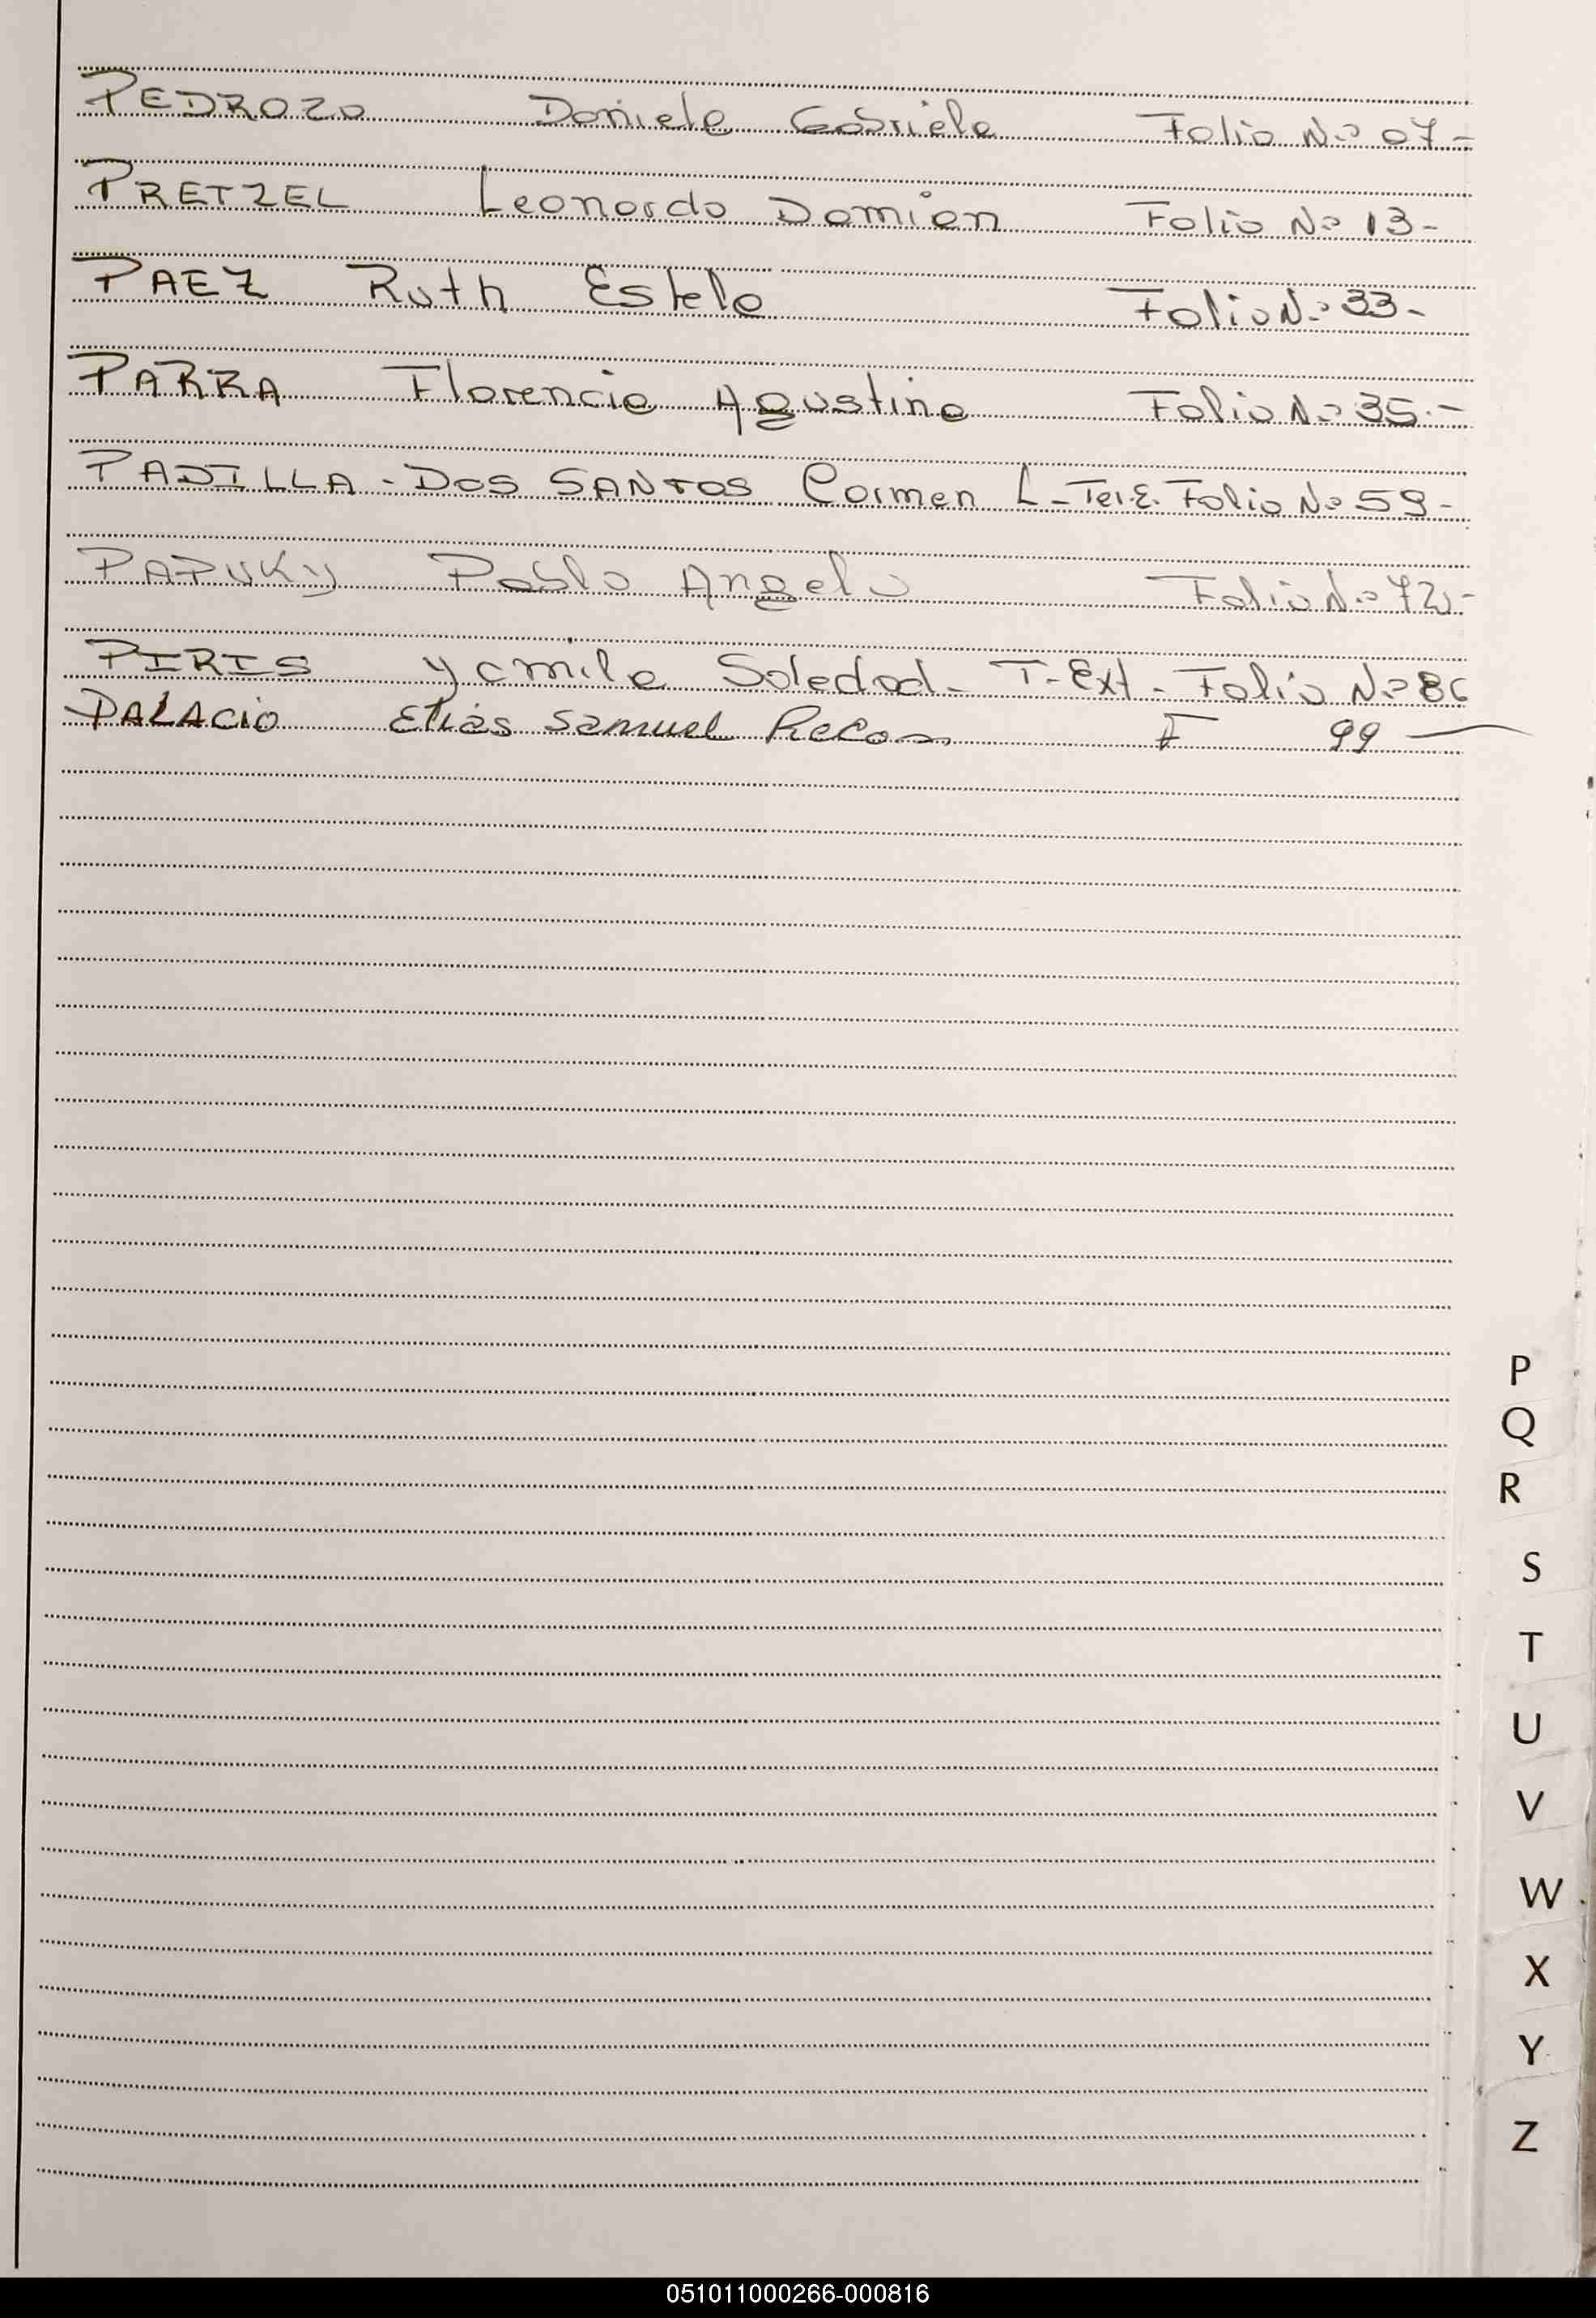 PEDROZO Daniela Gabriela Folio Nº 07-
PRETZEL Leonardo Damian Folio Nº 13-
PAEZ Ruth Estela Folio Nº 33-
PARRA Florencia Agustina Folio Nº 35.-
PADILLA - DOS SANTOS Carmen L - Ter.E. Folio Nº 59-
PAPUKY Pablo Angel Folio Nº 72-
PIRIS Yamila Soledad - T-Ext - Folio Nº 86
PALACIO Elias Samuel F 99
P
Q
R
S
T
U
V
W
X
Y
Z
051011000266-000816